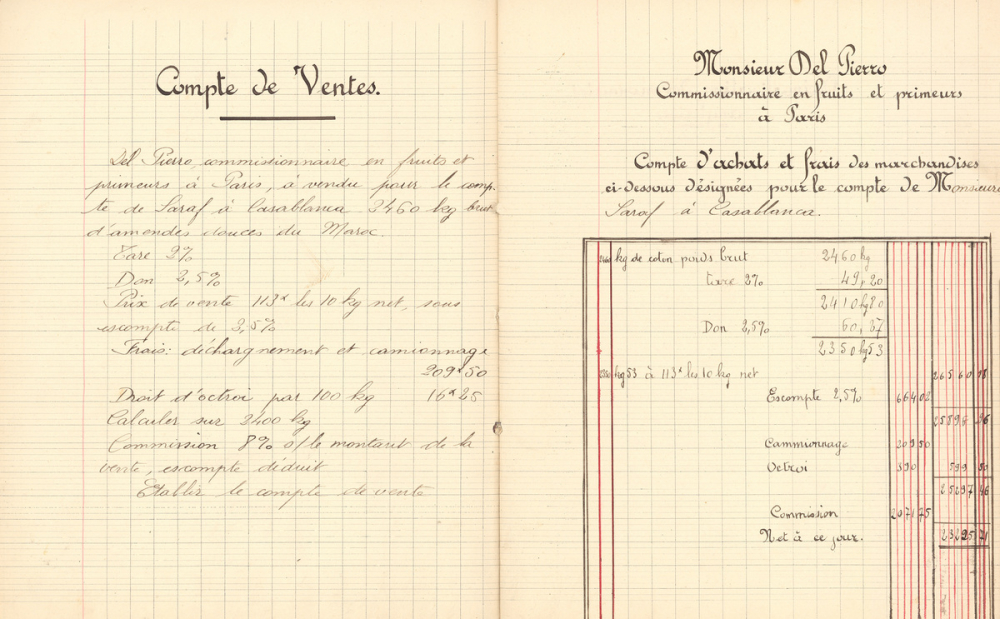 Compte de Ventes.
Del Pierro, commissionnaire en fruits et
primeurs à Paris, à vendu pour le comp-
te de Saraf à Casablanca 2460 kg brut
d'amendes douces du Maroc.
Tare 2%
Don 2,5%
Prix de vente 113f les 10 kg net, sous
escompte de 2,5%
Frais: déchargnement et camionnage
209f50
Droit d'octroi par 100 kg 16f25
Calculer sur 2400 kg
Commission 8% s/le montant de la
vente, escompte déduit
Etablir le compte de vente
Monsieur Del Pierro
Commissionnaire en fruits et primeurs
à Paris
Compte d'achats et frais des marchandises
ci-dessous désignées pour le compte de Monsieur
Saraf à Casablanca.
2460 kg de coton poids brut 2460 kg
tare 2% 49,20
2410 kg 80
Don 2,5% 60,27
2350 kg 53
2350 kg 53 à 113f les 10 kg net 26560 98
Escompte 2,5% 664 02
25896 96
Cammionnage 209 50
Octroi 390 599 50
25297 46
Commission 2071 75
Net à ce jour. 23225 71